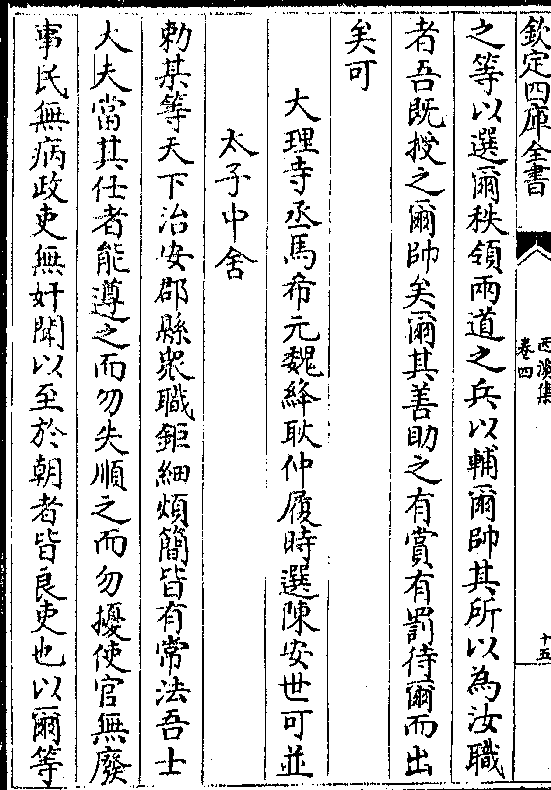 欽定四庫全書
西溪集
卷四
十五
之等以選爾秩領兩道之兵以輔爾帥其所以為汝職
者吾既授之爾帥矣爾其善助之有賞有罰待爾而出
矣可
大理寺丞馬希元魏絳耿仲履時選陳安世可並
太子中舍
勅某等天下治安郡縣衆職鉅細煩簡皆有常法吾士
大夫當其任者能遵之而勿失順之而勿擾使官無廢
事民無病政吏無奸聞以至於朝者皆良吏也以爾等